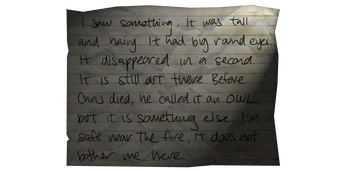 I saw something. It was tall
and hairy. It had big round eyes.
It disappeared in a second.
It is still out there. Before
Chris died, he called it an OWL
but it is something else. I'm
safe near the fire, it does not
bother me here.